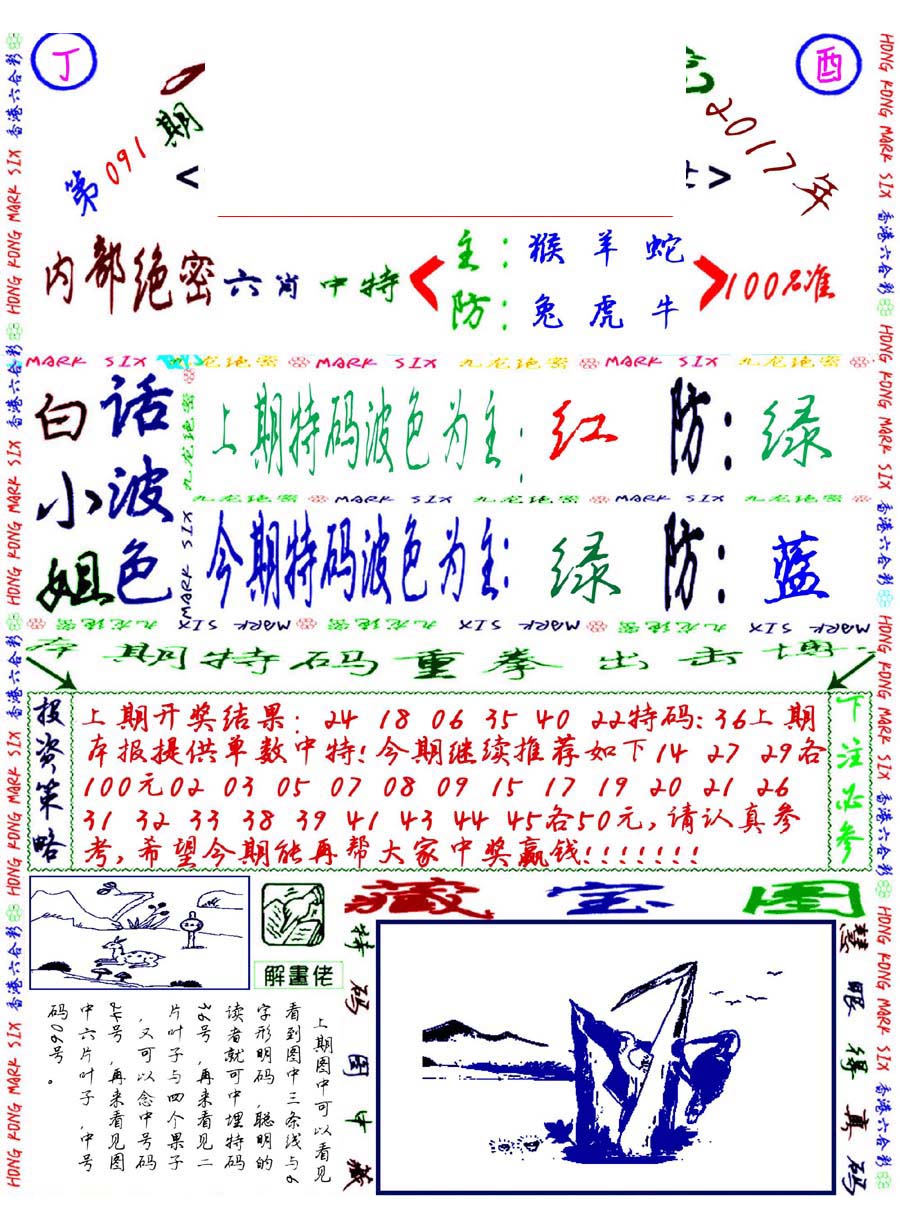 丁
酉
第091期
2017年
<
>
内部绝密六肖中特
主：猴 羊 蛇
防：兔 虎 牛
100%准
MARK SIX 九龙绝密 MARK SIX 九龙绝密 MARK SIX 九龙绝密
白话
小波
姐色
上期特码波色为主：红 防：绿
九龙绝密 MARK SIX 九龙绝密 MARK SIX 九龙绝密
今期特码波色为主：绿 防：蓝
九龙绝密
MARK SIX
九龙绝密 MARK SIX 九龙绝密 MARK SIX 九龙绝密 MARK SIX
期特码重拳出击
投资策略
上期开奖结果：24 18 06 35 40 22特码：36上期
本报提供单数中特！今期继续推荐如下14 27 29各
100元02 03 05 07 08 09 15 17 19 20 21 26
31 32 33 38 39 41 43 44 45各50元，请认真参
考，希望今期能再帮大家中奖赢钱！！！！！！！
下注必参
解畫佬
上期图中可以看见
看到图中三条线与6
字形明码，聪明的
读者就可中埋特码
36号，再来看见二
片叶子与四个果子
，又可以念中号码
24号，再来看见图
中六片叶子，中号
码06号。
藏宝图
特码图中藏
慧眼得真码
香港六合彩 HONG KONG MARK SIX 香港六合彩 HONG KONG MARK SIX 香港六合彩 HONG KONG MARK SIX 香港六合彩 HONG KONG MARK SIX
HONG KONG MARK SIX 香港六合彩 HONG KONG MARK SIX 香港六合彩 HONG KONG MARK SIX 香港六合彩 HONG KONG MARK SIX 香港六合彩